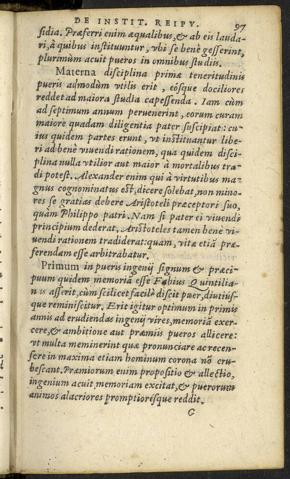 DE INSTIT. REIPV. 97
sidia. Præferri enim æqualibus, & ab eis lauda-
ri, à quibus instituuntur, vbi se benè gesserint,
plurimùm acuit pueros in omnibus studiis.
Materna disciplina primæ teneritudinis
pueris admodùm vtilis erit, eósque dociliores
reddet ad maiora studia capessenda. Iam cùm
ad septimum annum peruenerint, eorum curam
maiore quadam diligentia pater suscipiat: cu-
ius quidem partes erunt, vt instituantur libe-
ri ad benè viuendi rationem, qua quidem disci-
plina nulla vtilior aut maior à mortalibus tra-
di potest. Alexander enim qui à virtutibus ma-
gnus cognominatus est, dicere solebat, non mino-
res se gratias debere Aristoteli præceptori suo,
quàm Philippo patri. Nam si pater ei viuendi
principium dederat, Aristoteles tamen benè vi-
uendi rationem tradiderat: quam, vitæ etiā præ-
ferendam esse arbitrabatur.
Primum in pueris ingenij signum & præci-
puum quidem memoria esse Fabius Quintilia-
nus asserit, cùm scilicet facilè discit puer, diutiús-
que reminiscitur. Erit igitur optimum in primis
annis ad erudiendas ingenij vires, memoriā exer-
cere, & ambitione aut præmiis pueros allicere:
vt multa meminerint quæ pronunciare ac recen-
sere in maxima etiam hominum corona nō eru-
bescant. Præmiorum enim propositio & allectio,
ingenium acuit, memoriam excitat, & puerorum
animos alacriores promptiorésque reddit.
G